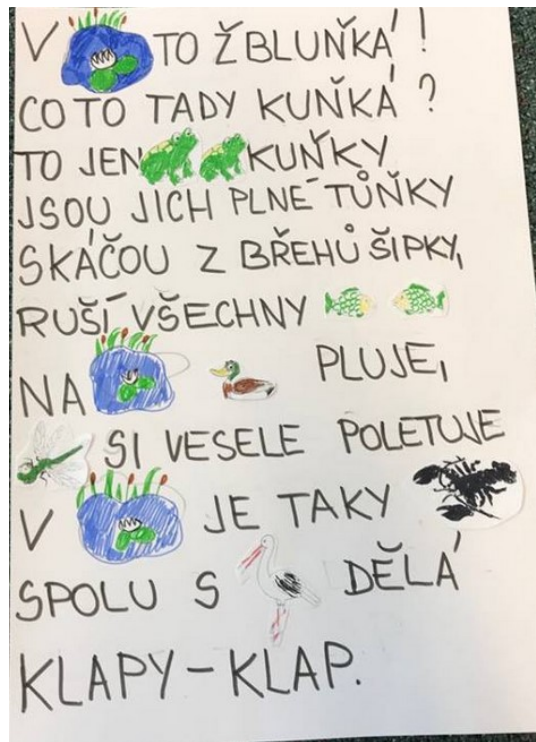 V TO ŽBLUŇKÁ!
CO TO TADY KUŇKÁ?
TO JEN KUŇKY
JSOU JICH PLNÉ TŮŇKY
SKÁČOU Z BŘEHŮ ŠIPKY,
RUŠÍ VŠECHNY
NA PLUJE,
SI VESELE POLETUJE
V JE TAKY
SPOLU S DĚLÁ
KLAPY-KLAP.